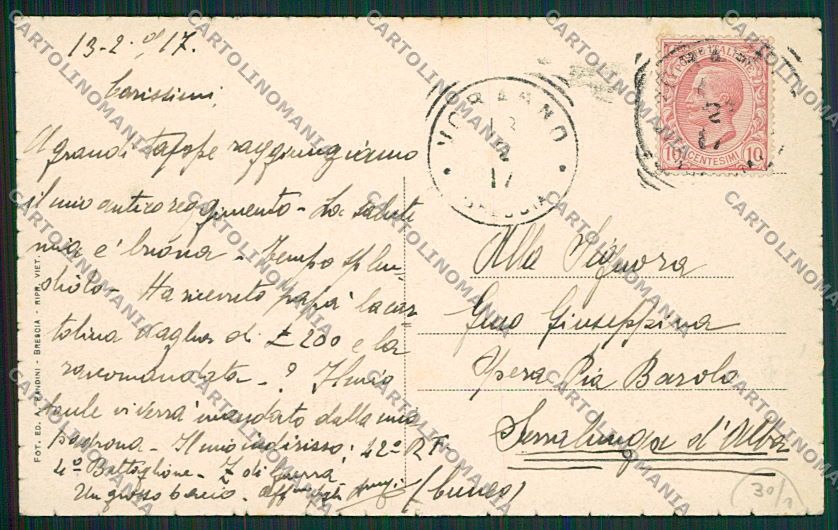 13-2-917.
Carissimi,
A grandi tappe raggiungiamo
il mio antico reggimento - La salute
mia e' buona - Tempo splen-
dido - Ha ricevuto papà la car
tolina vaglia di £ 200 e la
raccomandata - ? Il mio
baule vi verrà mandato dalla mia
padrona - Il mio indirizzo: 42° R F.
4° Battaglione - Z di Guerra
Un grosso bacio - Aff
VOBARNO
13
17
BRESCIA
10 CENTESIMI 10
2
17
Alla Signora
Giuseppina
Opera Pia Barolo
Serralunga d'Alba
(Cuneo)
30/
FOT. ED. A. ZANDINI - BRESCIA - RIPR. VIET.
CARTOLINOMANIA